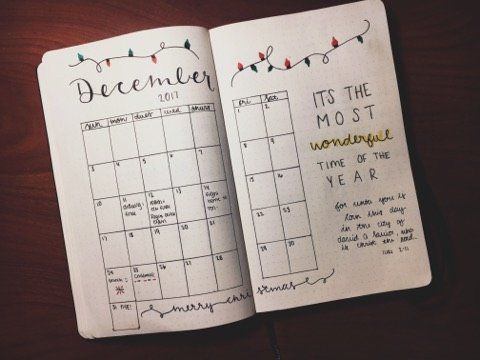 December
2017
sun mon tues wed thurs
3 4 5 6 7
10 11 12 13 14
17 18 19 20 21
24 25 26 27 28
Christmas
31 NYE!
merry christmas
fri sat
1 2
8 9
15 16
22 23
29 30
ITS THE
MOST
wonderful
TIME OF THE
YEAR
for unto you is
born this day
in the city of
david a savior, who
is christ the lord.
luke 2:11